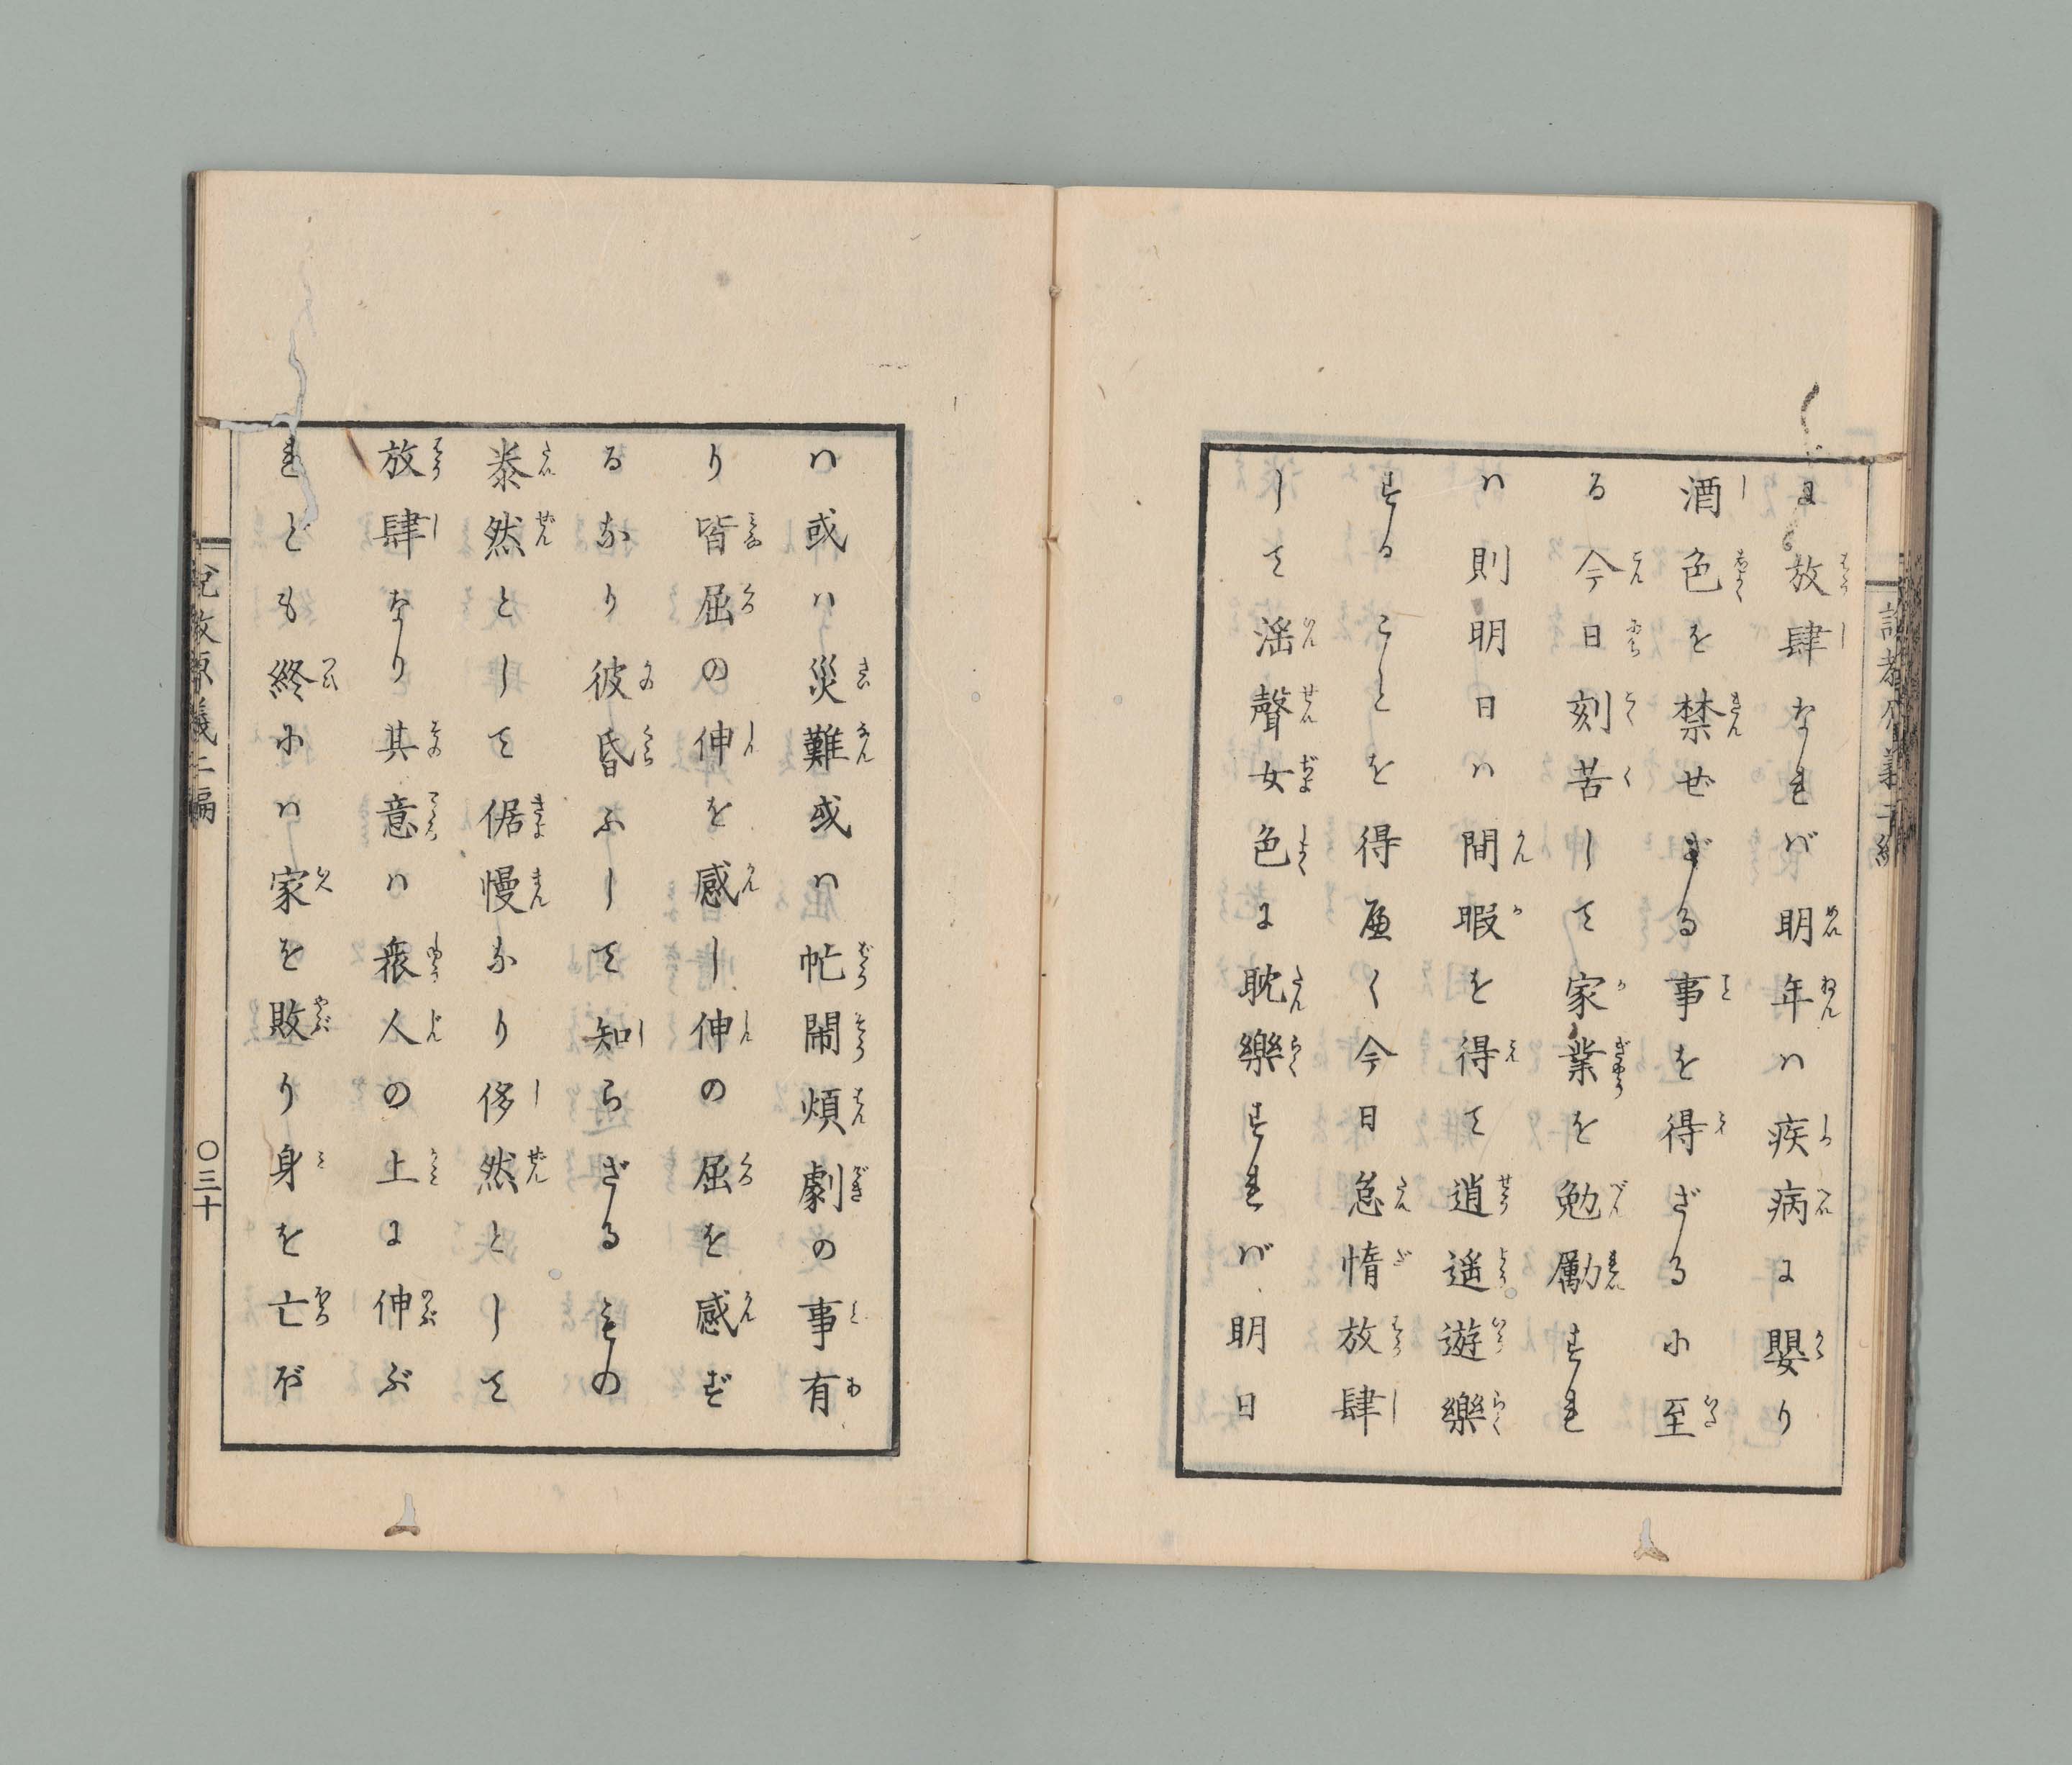 に放肆なれバ明年ハ疾病に嬰り
酒色を禁ぜざる事を得ざる小至
る今日刻苦して家業を勉勵すれ
ハ則明日ハ間暇を得て逍遥遊樂
することを得べく今日怠惰放肆
して淫聲女色に耽樂すれバ明日
ハ或ハ災難或ハ忙鬧煩劇の事有
り皆屈の伸を感し伸の屈を感ず
るなり彼昏ふして知らざるもの
泰然として倨慢なり侈然として
放肆なり其意ハ衆人の上に伸ぶ
れども終小ハ家を敗り身を亡ぼ
説教原義二編
〇三十